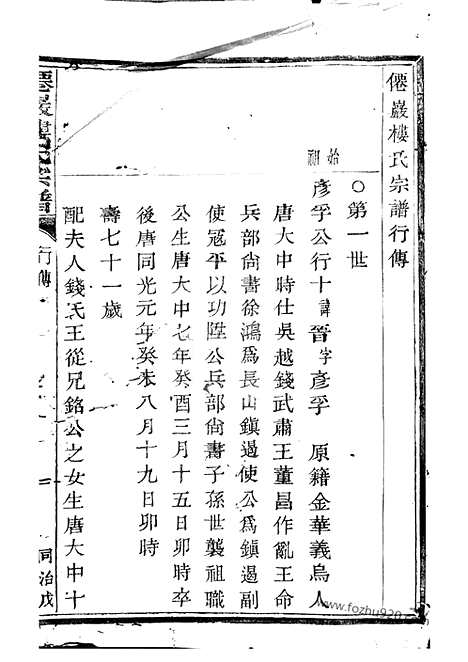 僊巖樓氏宗譜行傳
○第一世
始祖
彥孚公行十諱晉字彥孚 原籍金華義烏人
唐大中時仕吳越錢武肅王董昌作亂王命
兵部尙書徐鴻爲長山鎮遏使公爲鎮遏副
使冦平以功陞公兵部尙書子孫世襲祖職
公生唐大中七年癸酉三月十五日卯時卒
後唐同光元年癸未八月十九日卯時
壽七十一歲
配夫人錢氏王從兄銘公之女生唐大中十
僊巖樓氏宗譜
行傳
一
同治戊
www.fozhu920.com